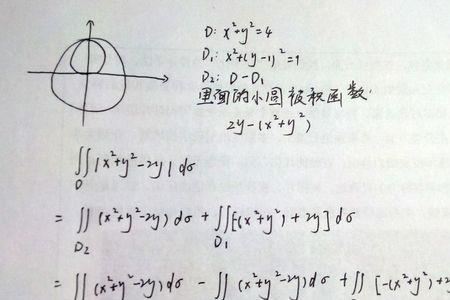 D: x²+y²=4
D₁: x²+(y-1)²=1
D₂: D-D₁
里面的小圆被积函数:
2y-(x²+y²)
∬_D |x²+y²-2y| dσ
= ∬_{D₂} (x²+y²-2y) dσ + ∬_{D₁} [-(x²+y²)+2y] dσ
= ∬ (x²+y²-2y) dσ - ∬ (x²+y²-2y) dσ + ∬ [-(x²+y²)+2